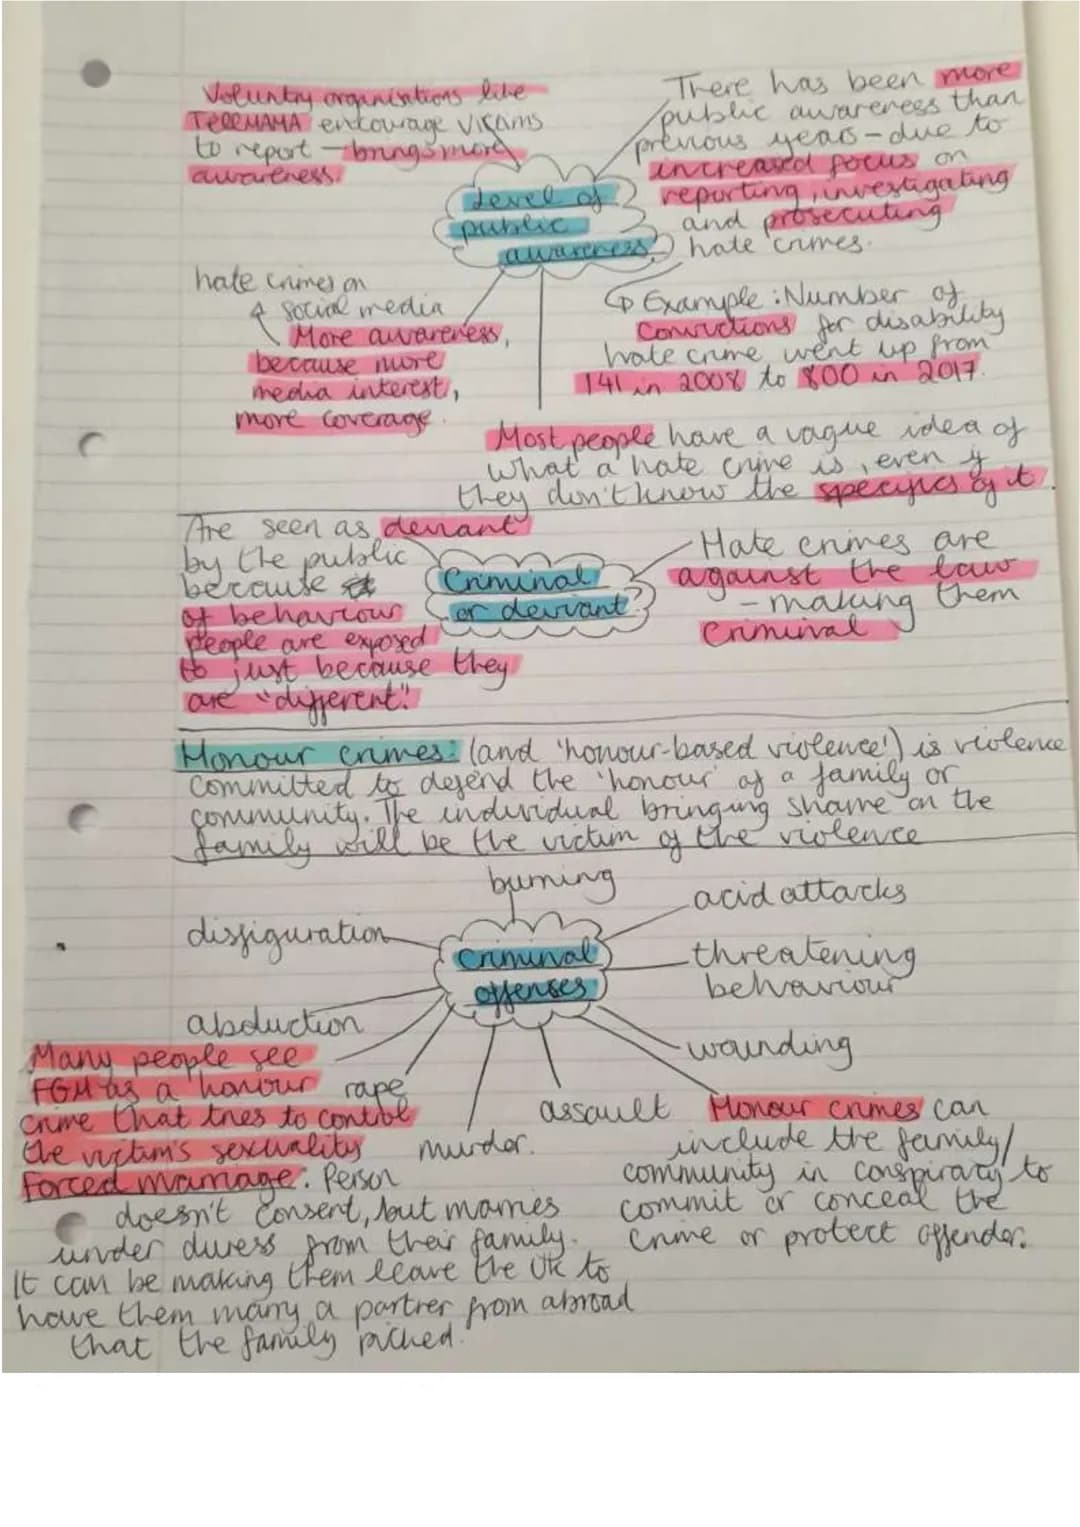 Voluntry organisations like
TellMAMA encourage victims
to report - brings more
awareness.
There has been more
public awareness than
previous years - due to
increased focus on
reporting, investigating
and prosecuting
hate crimes.
Level of
public
awareness
hate crimes on
social media
More awareness,
because more
media interest,
more coverage.
Example: Number of
convictions for disability
hate crime went up from
141 in 2008 to 800 in 2017.
Most people have a vague idea of
what a hate crime is, even if
they don't know the specifics of it.
Are seen as deviant
by the public
because
of behaviour
people are exposed
to just because they
are "different".
Criminal
or deviant?
Hate crimes are
against the law
- making them
criminal
Honour crimes: (and 'honour-based violence') is violence
committed to defend the 'honour' of a family or
community. The individual bringing shame on the
family will be the victim of the violence
burning
acid attacks
disfiguration
Criminal
offenses
threatening
behaviour
abduction
wounding
Many people see
FGM as a honour
crime that tries to control
the victim's sexuality
rape
murder.
assault
Honour crimes can
include the family/
community in conspiracy to
commit or conceal the
crime or protect offender.
Forced marriage: Person
doesn't consent, but marries
under duress from their family.
It can be making them leave the UK to
have them marry a partner from abroad
that the family picked.